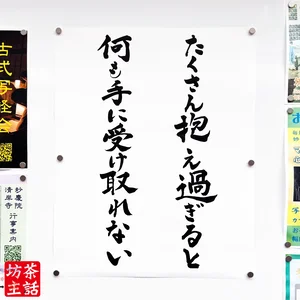 たくさん抱え過ぎると
何も手に受け取れない
古式写経会
妙慶院
清岸寺
行事案内
坊主
茶話